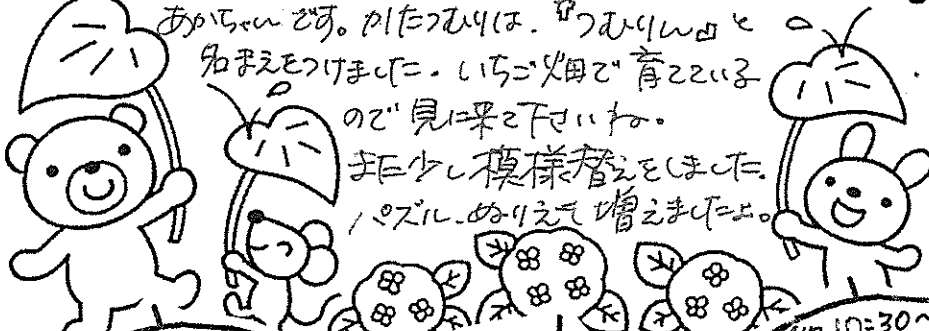 あかちゃんです。かたつむりは、『つむりん』と
名まえをつけました。いちご畑で育てている
ので見に来て下さいね。
また少し模様替えをしました。
パズル、ぬりえも増えましたよ。
10:30〜